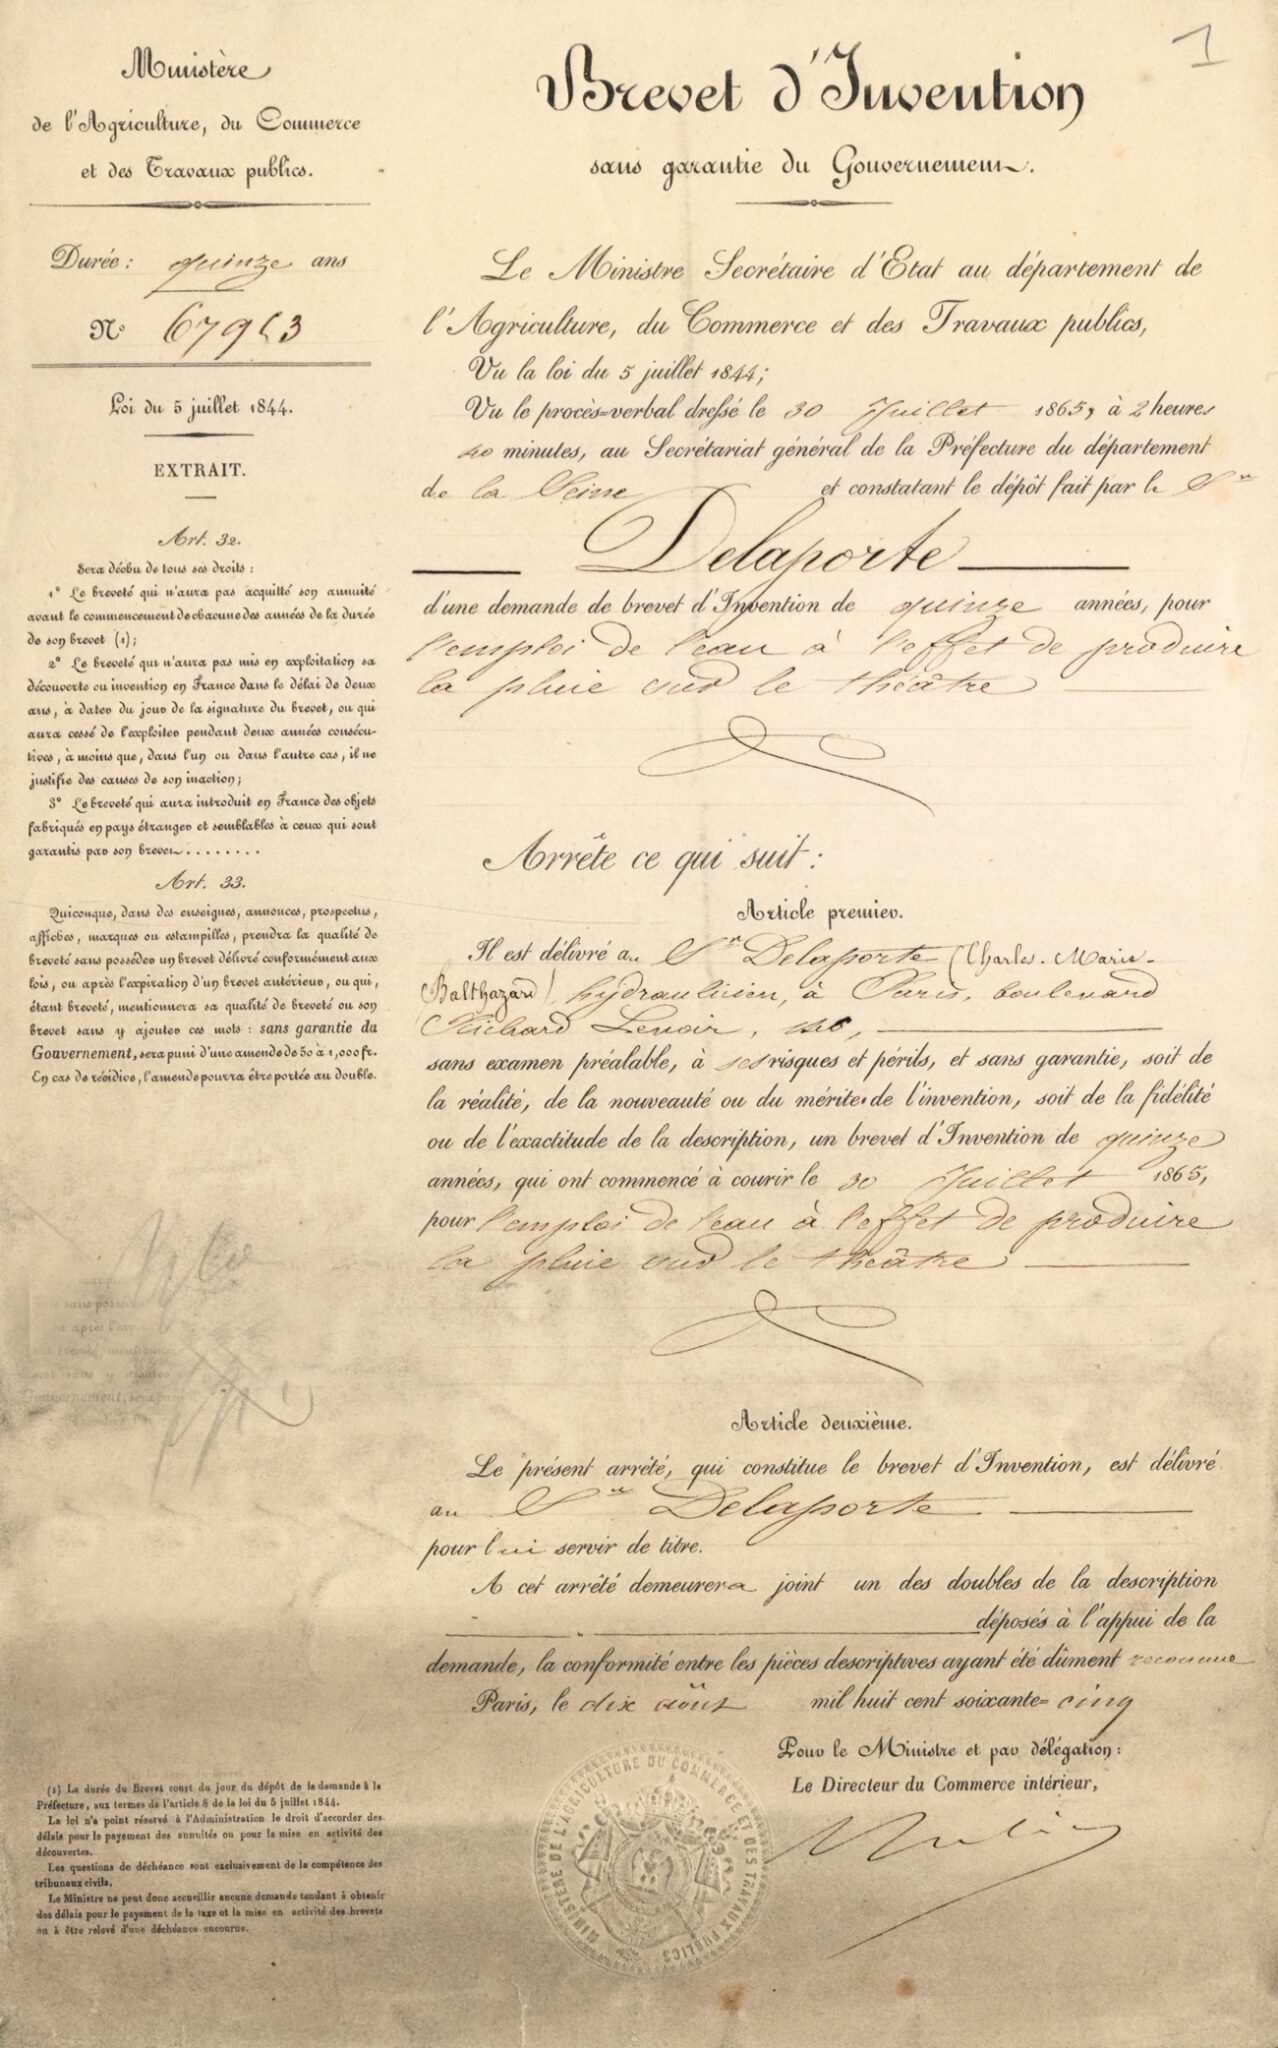 1
Ministère
de l'Agriculture, du Commerce
et des Travaux publics.
Durée : quinze ans
N° 67953
Loi du 5 juillet 1844.
EXTRAIT.
Art. 32.
Sera déchu de tous ses droits :
1° Le breveté qui n'aura pas acquitté son annuité
avant le commencement de chacune des années de la durée
de son brevet (1) ;
2° Le breveté qui n'aura pas mis en exploitation sa
découverte ou invention en France dans le délai de deux
ans, à dater du jour de la signature du brevet, ou qui
aura cessé de l'exploiter pendant deux années consécu-
tives, à moins que, dans l'un ou dans l'autre cas, il ne
justifie des causes de son inaction ;
3° Le breveté qui aura introduit en France des objets
fabriqués en pays étranger et semblables à ceux qui sont
garantis par son brevet........
Art. 33.
Quiconque, dans des enseignes, annonces, prospectus,
affiches, marques ou estampilles, prendra la qualité de
breveté sans posséder un brevet délivré conformément aux
lois, ou après l'expiration d'un brevet antérieur, ou qui,
étant breveté, mentionnera sa qualité de breveté ou son
brevet sans y ajouter ces mots : sans garantie du
Gouvernement, sera puni d'une amende de 50 à 1,000 fr.
En cas de récidive, l'amende pourra être portée au double.
(1) La durée du Brevet court du jour du dépôt de la demande à la
Préfecture, aux termes de l'article 8 de la loi du 5 juillet 1844.
La loi n'a point réservé à l'Administration le droit d'accorder des
délais pour le payement des annuités ou pour la mise en activité des
découvertes.
Les questions de déchéance sont exclusivement de la compétence des
tribunaux civils.
Le Ministre ne peut donc accueillir aucune demande tendant à obtenir
des délais pour le payement de la taxe et la mise en activité des brevets
ou à être relevé d'une déchéance encourue.
Brevet d'Invention
sans garantie du Gouvernement.
Le Ministre Secrétaire d'État au département de
l'Agriculture, du Commerce et des Travaux publics,
Vu la loi du 5 juillet 1844 ;
Vu le procès-verbal dressé le 30 Juillet 1865, à 2 heures
40 minutes, au Secrétariat général de la Préfecture du département
de la Seine et constatant le dépôt fait par le Sr
Delaporte
d'une demande de brevet d'Invention de quinze années, pour
l'emploi de l'eau à l'effet de produire
la pluie sur le théâtre
Arrête ce qui suit :
Article premier.
Il est délivré au Sr Delaporte (Charles-Marie-
Balthazard) hydraulicien, à Paris, boulevard
Richard Lenoir,
sans examen préalable, à ses risques et périls, et sans garantie, soit de
la réalité, de la nouveauté ou du mérite de l'invention, soit de la fidélité
ou de l'exactitude de la description, un brevet d'Invention de quinze
années, qui ont commencé à courir le 30 Juillet 1865,
pour l'emploi de l'eau à l'effet de produire
la pluie sur le théâtre
Article deuxième.
Le présent arrêté, qui constitue le brevet d'Invention, est délivré
au Sr Delaporte
pour lui servir de titre.
A cet arrêté demeurera joint un des doubles de la description
déposés à l'appui de la
demande, la conformité entre les pièces descriptives ayant été dûment reconnue
Paris, le dix août mil huit cent soixante-cinq
Pour le Ministre et par délégation :
Le Directeur du Commerce intérieur,
MINISTÈRE DE L'AGRICULTURE DU COMMERCE ET DES TRAVAUX PUBLICS